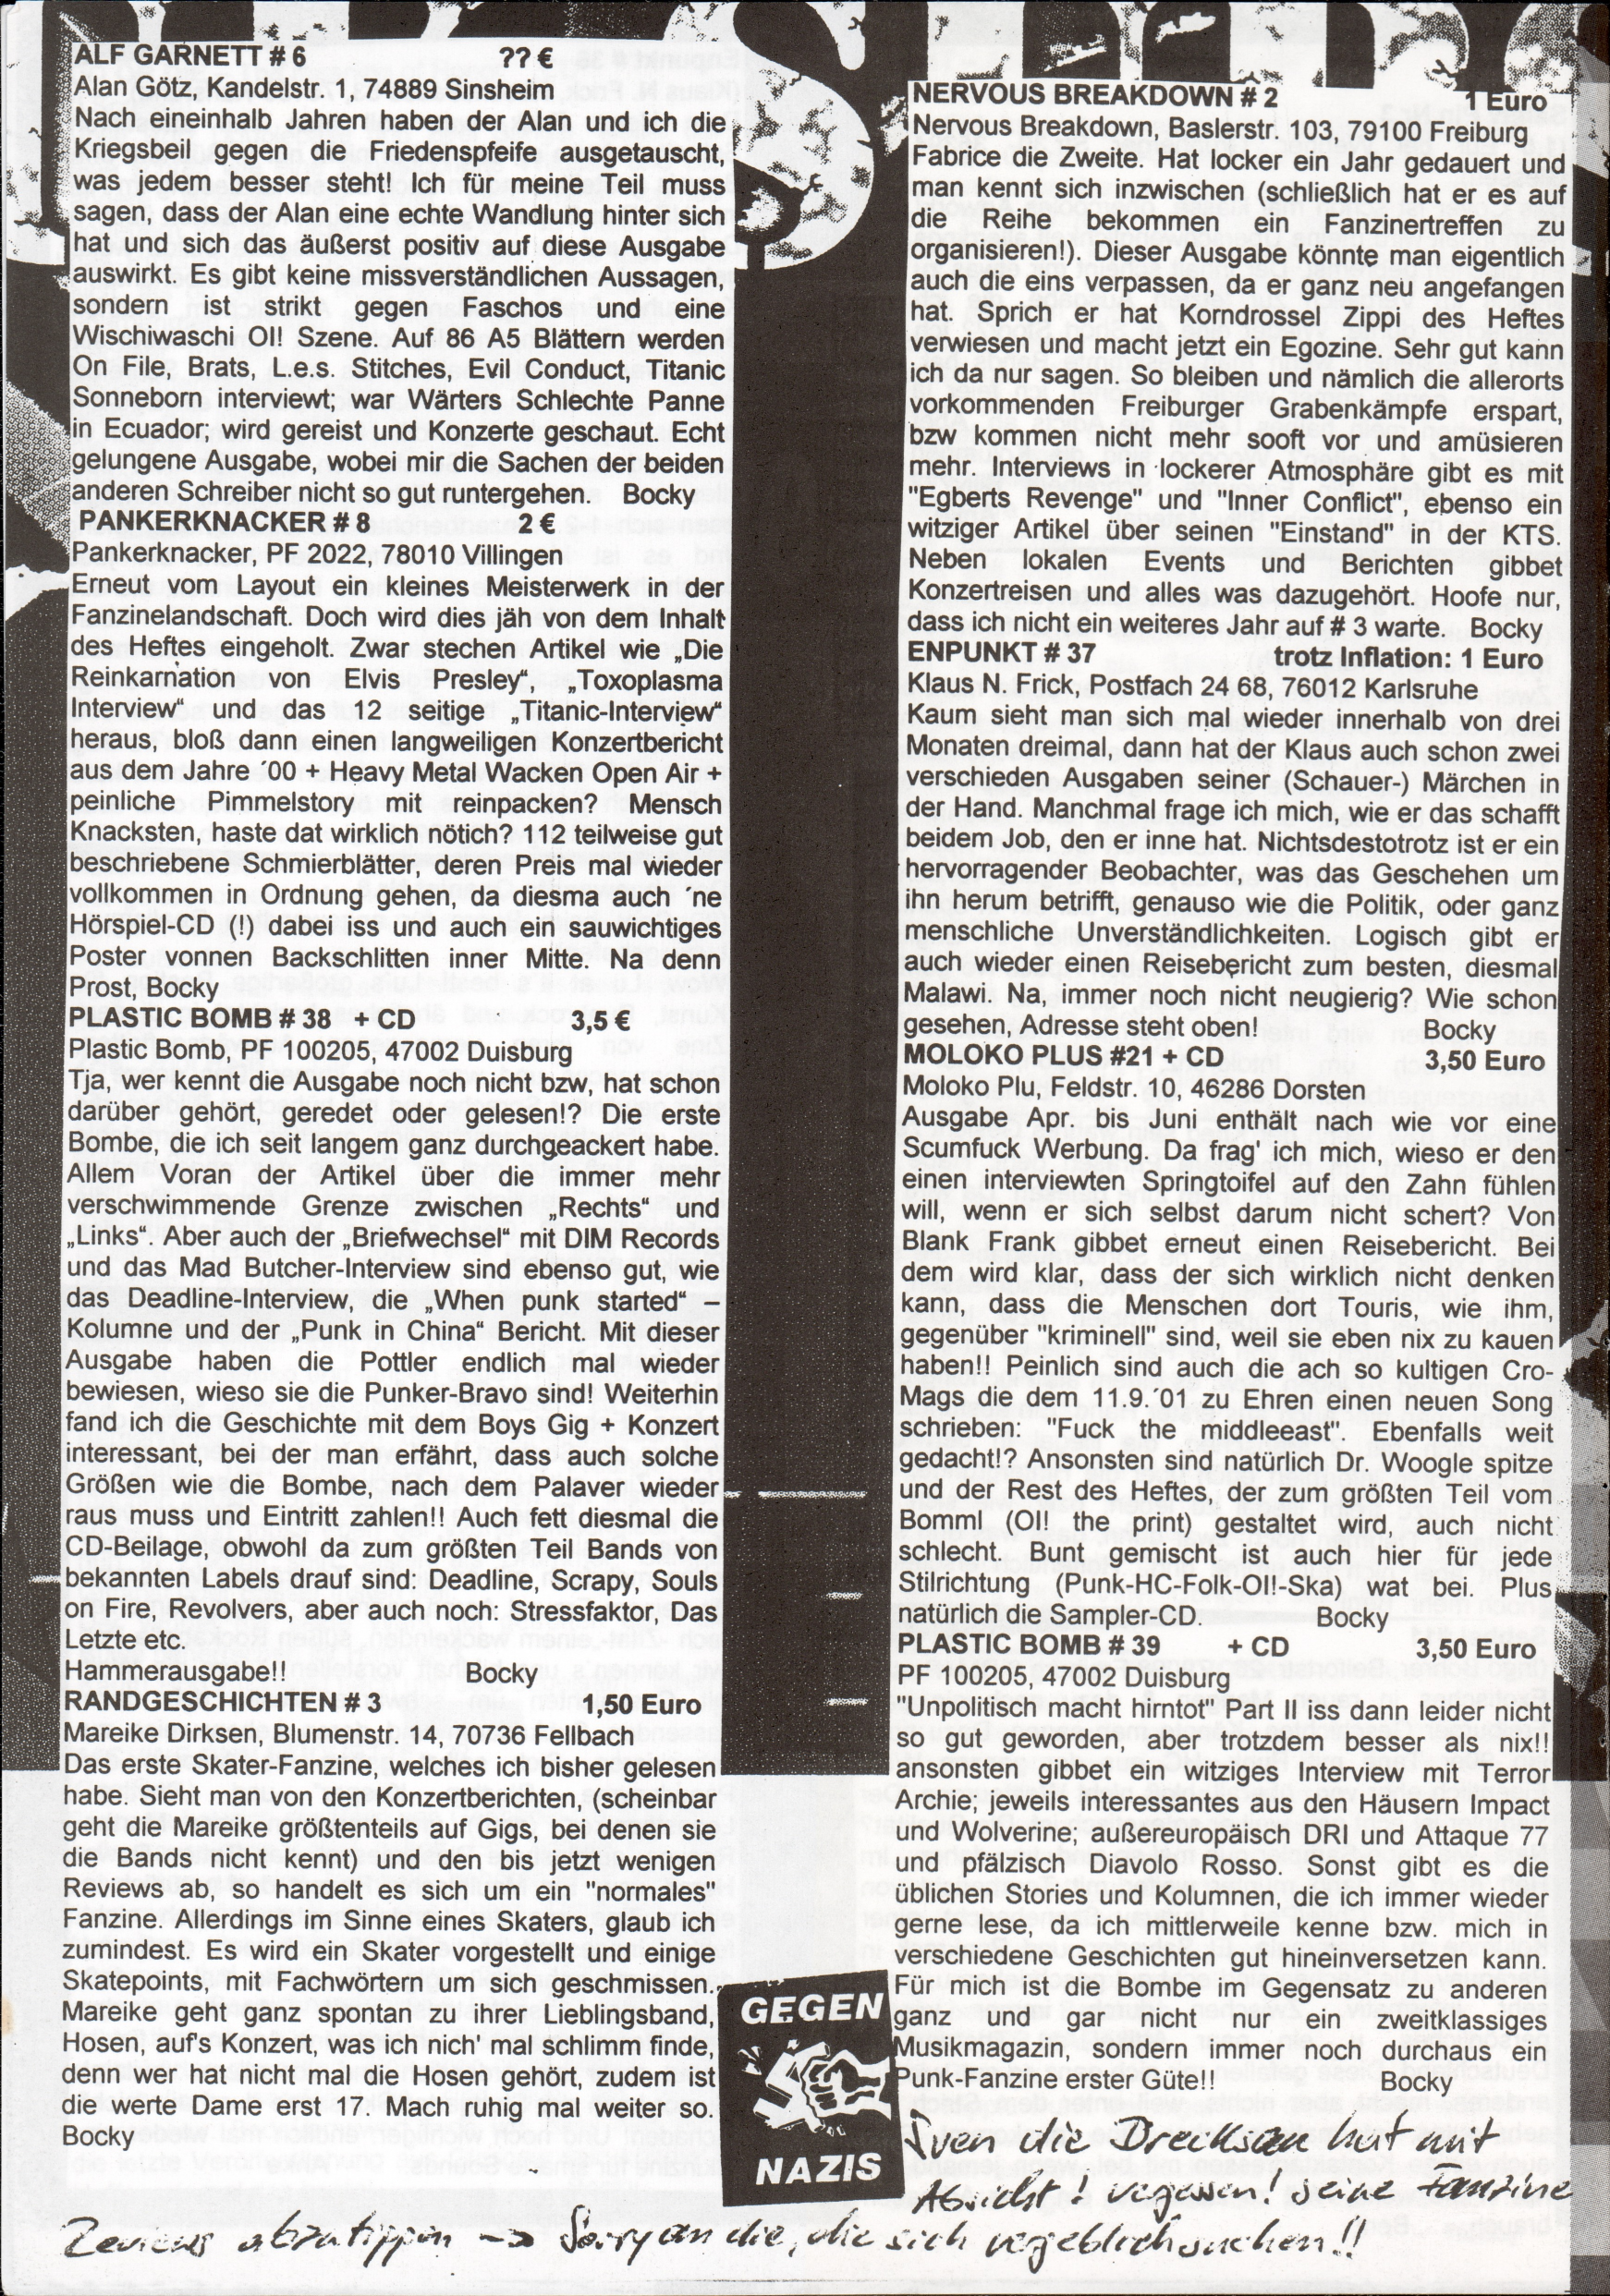 ALF GARNETT # 6 ?? €
Alan Götz, Kandelstr. 1, 74889 Sinsheim
Nach eineinhalb Jahren haben der Alan und ich die
Kriegsbeil gegen die Friedenspfeife ausgetauscht,
was jedem besser steht! Ich für meine Teil muss
sagen, dass der Alan eine echte Wandlung hinter sich
hat und sich das äußerst positiv auf diese Ausgabe
auswirkt. Es gibt keine missverständlichen Aussagen,
sondern ist strikt gegen Faschos und eine
Wischiwaschi OI! Szene. Auf 86 A5 Blättern werden
On File, Brats, L.e.s. Stitches, Evil Conduct, Titanic
Sonneborn interviewt; war Wärters Schlechte Panne
in Ecuador; wird gereist und Konzerte geschaut. Echt
gelungene Ausgabe, wobei mir die Sachen der beiden
anderen Schreiber nicht so gut runtergehen. Bocky
PANKERKNACKER # 8 2 €
Pankerknacker, PF 2022, 78010 Villingen
Erneut vom Layout ein kleines Meisterwerk in der
Fanzinelandschaft. Doch wird dies jäh von dem Inhalt
des Heftes eingeholt. Zwar stechen Artikel wie „Die
Reinkarnation von Elvis Presley“, „Toxoplasma
Interview“ und das 12 seitige „Titanic-Interview“
heraus, bloß dann einen langweiligen Konzertbericht
aus dem Jahre ´00 + Heavy Metal Wacken Open Air +
peinliche Pimmelstory mit reinpacken? Mensch
Knacksten, haste dat wirklich nötich? 112 teilweise gut
beschriebene Schmierblätter, deren Preis mal wieder
vollkommen in Ordnung gehen, da diesma auch ´ne
Hörspiel-CD (!) dabei iss und auch ein sauwichtiges
Poster vonnen Backschlitten inner Mitte. Na denn
Prost, Bocky
PLASTIC BOMB # 38 + CD 3,5 €
Plastic Bomb, PF 100205, 47002 Duisburg
Tja, wer kennt die Ausgabe noch nicht bzw, hat schon
darüber gehört, geredet oder gelesen!? Die erste
Bombe, die ich seit langem ganz durchgeackert habe.
Allem Voran der Artikel über die immer mehr
verschwimmende Grenze zwischen „Rechts“ und
„Links“. Aber auch der „Briefwechsel“ mit DIM Records
und das Mad Butcher-Interview sind ebenso gut, wie
das Deadline-Interview, die „When punk started“ –
Kolumne und der „Punk in China“ Bericht. Mit dieser
Ausgabe haben die Pottler endlich mal wieder
bewiesen, wieso sie die Punker-Bravo sind! Weiterhin
fand ich die Geschichte mit dem Boys Gig + Konzert
interessant, bei der man erfährt, dass auch solche
Größen wie die Bombe, nach dem Palaver wieder
raus muss und Eintritt zahlen!! Auch fett diesmal die
CD-Beilage, obwohl da zum größten Teil Bands von
bekannten Labels drauf sind: Deadline, Scrapy, Souls
on Fire, Revolvers, aber auch noch: Stressfaktor, Das
Letzte etc.
Hammerausgabe!! Bocky
RANDGESCHICHTEN # 3 1,50 Euro
Mareike Dirksen, Blumenstr. 14, 70736 Fellbach
Das erste Skater-Fanzine, welches ich bisher gelesen
habe. Sieht man von den Konzertberichten, (scheinbar
geht die Mareike größtenteils auf Gigs, bei denen sie
die Bands nicht kennt) und den bis jetzt wenigen
Reviews ab, so handelt es sich um ein "normales"
Fanzine. Allerdings im Sinne eines Skaters, glaub ich
zumindest. Es wird ein Skater vorgestellt und einige
Skatepoints, mit Fachwörtern um sich geschmissen.
Mareike geht ganz spontan zu ihrer Lieblingsband,
Hosen, auf's Konzert, was ich nich' mal schlimm finde,
denn wer hat nicht mal die Hosen gehört, zudem ist
die werte Dame erst 17. Mach ruhig mal weiter so.
Bocky
NERVOUS BREAKDOWN # 2 1 Euro
Nervous Breakdown, Baslerstr. 103, 79100 Freiburg
Fabrice die Zweite. Hat locker ein Jahr gedauert und
man kennt sich inzwischen (schließlich hat er es auf
die Reihe bekommen ein Fanzinertreffen zu
organisieren!). Dieser Ausgabe könnte man eigentlich
auch die eins verpassen, da er ganz neu angefangen
hat. Sprich er hat Korndrossel Zippi des Heftes
verwiesen und macht jetzt ein Egozine. Sehr gut kann
ich da nur sagen. So bleiben und nämlich die allerorts
vorkommenden Freiburger Grabenkämpfe erspart,
bzw kommen nicht mehr sooft vor und amüsieren
mehr. Interviews in lockerer Atmosphäre gibt es mit
"Egberts Revenge" und "Inner Conflict", ebenso ein
witziger Artikel über seinen "Einstand" in der KTS.
Neben lokalen Events und Berichten gibbet
Konzertreisen und alles was dazugehört. Hoofe nur,
dass ich nicht ein weiteres Jahr auf # 3 warte. Bocky
ENPUNKT # 37 trotz Inflation: 1 Euro
Klaus N. Frick, Postfach 24 68, 76012 Karlsruhe
Kaum sieht man sich mal wieder innerhalb von drei
Monaten dreimal, dann hat der Klaus auch schon zwei
verschieden Ausgaben seiner (Schauer-) Märchen in
der Hand. Manchmal frage ich mich, wie er das schafft
beidem Job, den er inne hat. Nichtsdestotrotz ist er ein
hervorragender Beobachter, was das Geschehen um
ihn herum betrifft, genauso wie die Politik, oder ganz
menschliche Unverständlichkeiten. Logisch gibt er
auch wieder einen Reisebericht zum besten, diesmal
Malawi. Na, immer noch nicht neugierig? Wie schon
gesehen, Adresse steht oben! Bocky
MOLOKO PLUS #21 + CD 3,50 Euro
Moloko Plu, Feldstr. 10, 46286 Dorsten
Ausgabe Apr. bis Juni enthält nach wie vor eine
Scumfuck Werbung. Da frag' ich mich, wieso er den
einen interviewten Springtoifel auf den Zahn fühlen
will, wenn er sich selbst darum nicht schert? Von
Blank Frank gibbet erneut einen Reisebericht. Bei
dem wird klar, dass der sich wirklich nicht denken
kann, dass die Menschen dort Touris, wie ihm,
gegenüber "kriminell" sind, weil sie eben nix zu kauen
haben!! Peinlich sind auch die ach so kultigen Cro-
Mags die dem 11.9.´01 zu Ehren einen neuen Song
schrieben: "Fuck the middleeast". Ebenfalls weit
gedacht!? Ansonsten sind natürlich Dr. Woogle spitze
und der Rest des Heftes, der zum größten Teil vom
Bomml (OI! the print) gestaltet wird, auch nicht
schlecht. Bunt gemischt ist auch hier für jede
Stilrichtung (Punk-HC-Folk-OI!-Ska) wat bei. Plus
natürlich die Sampler-CD. Bocky
PLASTIC BOMB # 39 + CD 3,50 Euro
PF 100205, 47002 Duisburg
"Unpolitisch macht hirntot" Part II iss dann leider nicht
so gut geworden, aber trotzdem besser als nix!!
ansonsten gibbet ein witziges Interview mit Terror
Archie; jeweils interessantes aus den Häusern Impact
und Wolverine; außereuropäisch DRI und Attaque 77
und pfälzisch Diavolo Rosso. Sonst gibt es die
üblichen Stories und Kolumnen, die ich immer wieder
gerne lese, da ich mittlerweile kenne bzw. mich in
verschiedene Geschichten gut hineinversetzen kann.
Für mich ist die Bombe im Gegensatz zu anderen
ganz und gar nicht nur ein zweitklassiges
Musikmagazin, sondern immer noch durchaus ein
Punk-Fanzine erster Güte!! Bocky
GEGEN
NAZIS
Sven die Drecksau hat mit
Absicht! vegessen! seine Fanzine
Reviews abzutippen -> Sorry an die, die sich vergeblich suchen!!